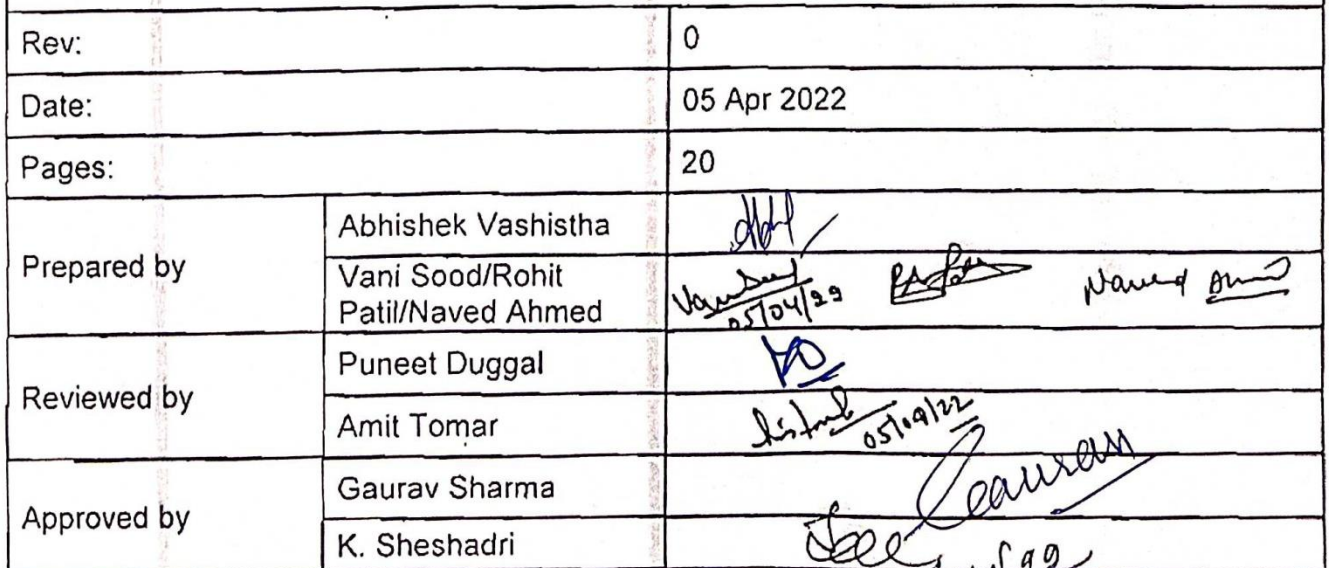 Rev: 0
Date: 05 Apr 2022
Pages: 20
Prepared by
Abhishek Vashistha
Vani Sood/Rohit
Patil/Naved Ahmed
05/04/22
Reviewed by
Puneet Duggal
Amit Tomar
05/04/22
Approved by
Gaurav Sharma
Gaurav
K. Sheshadri